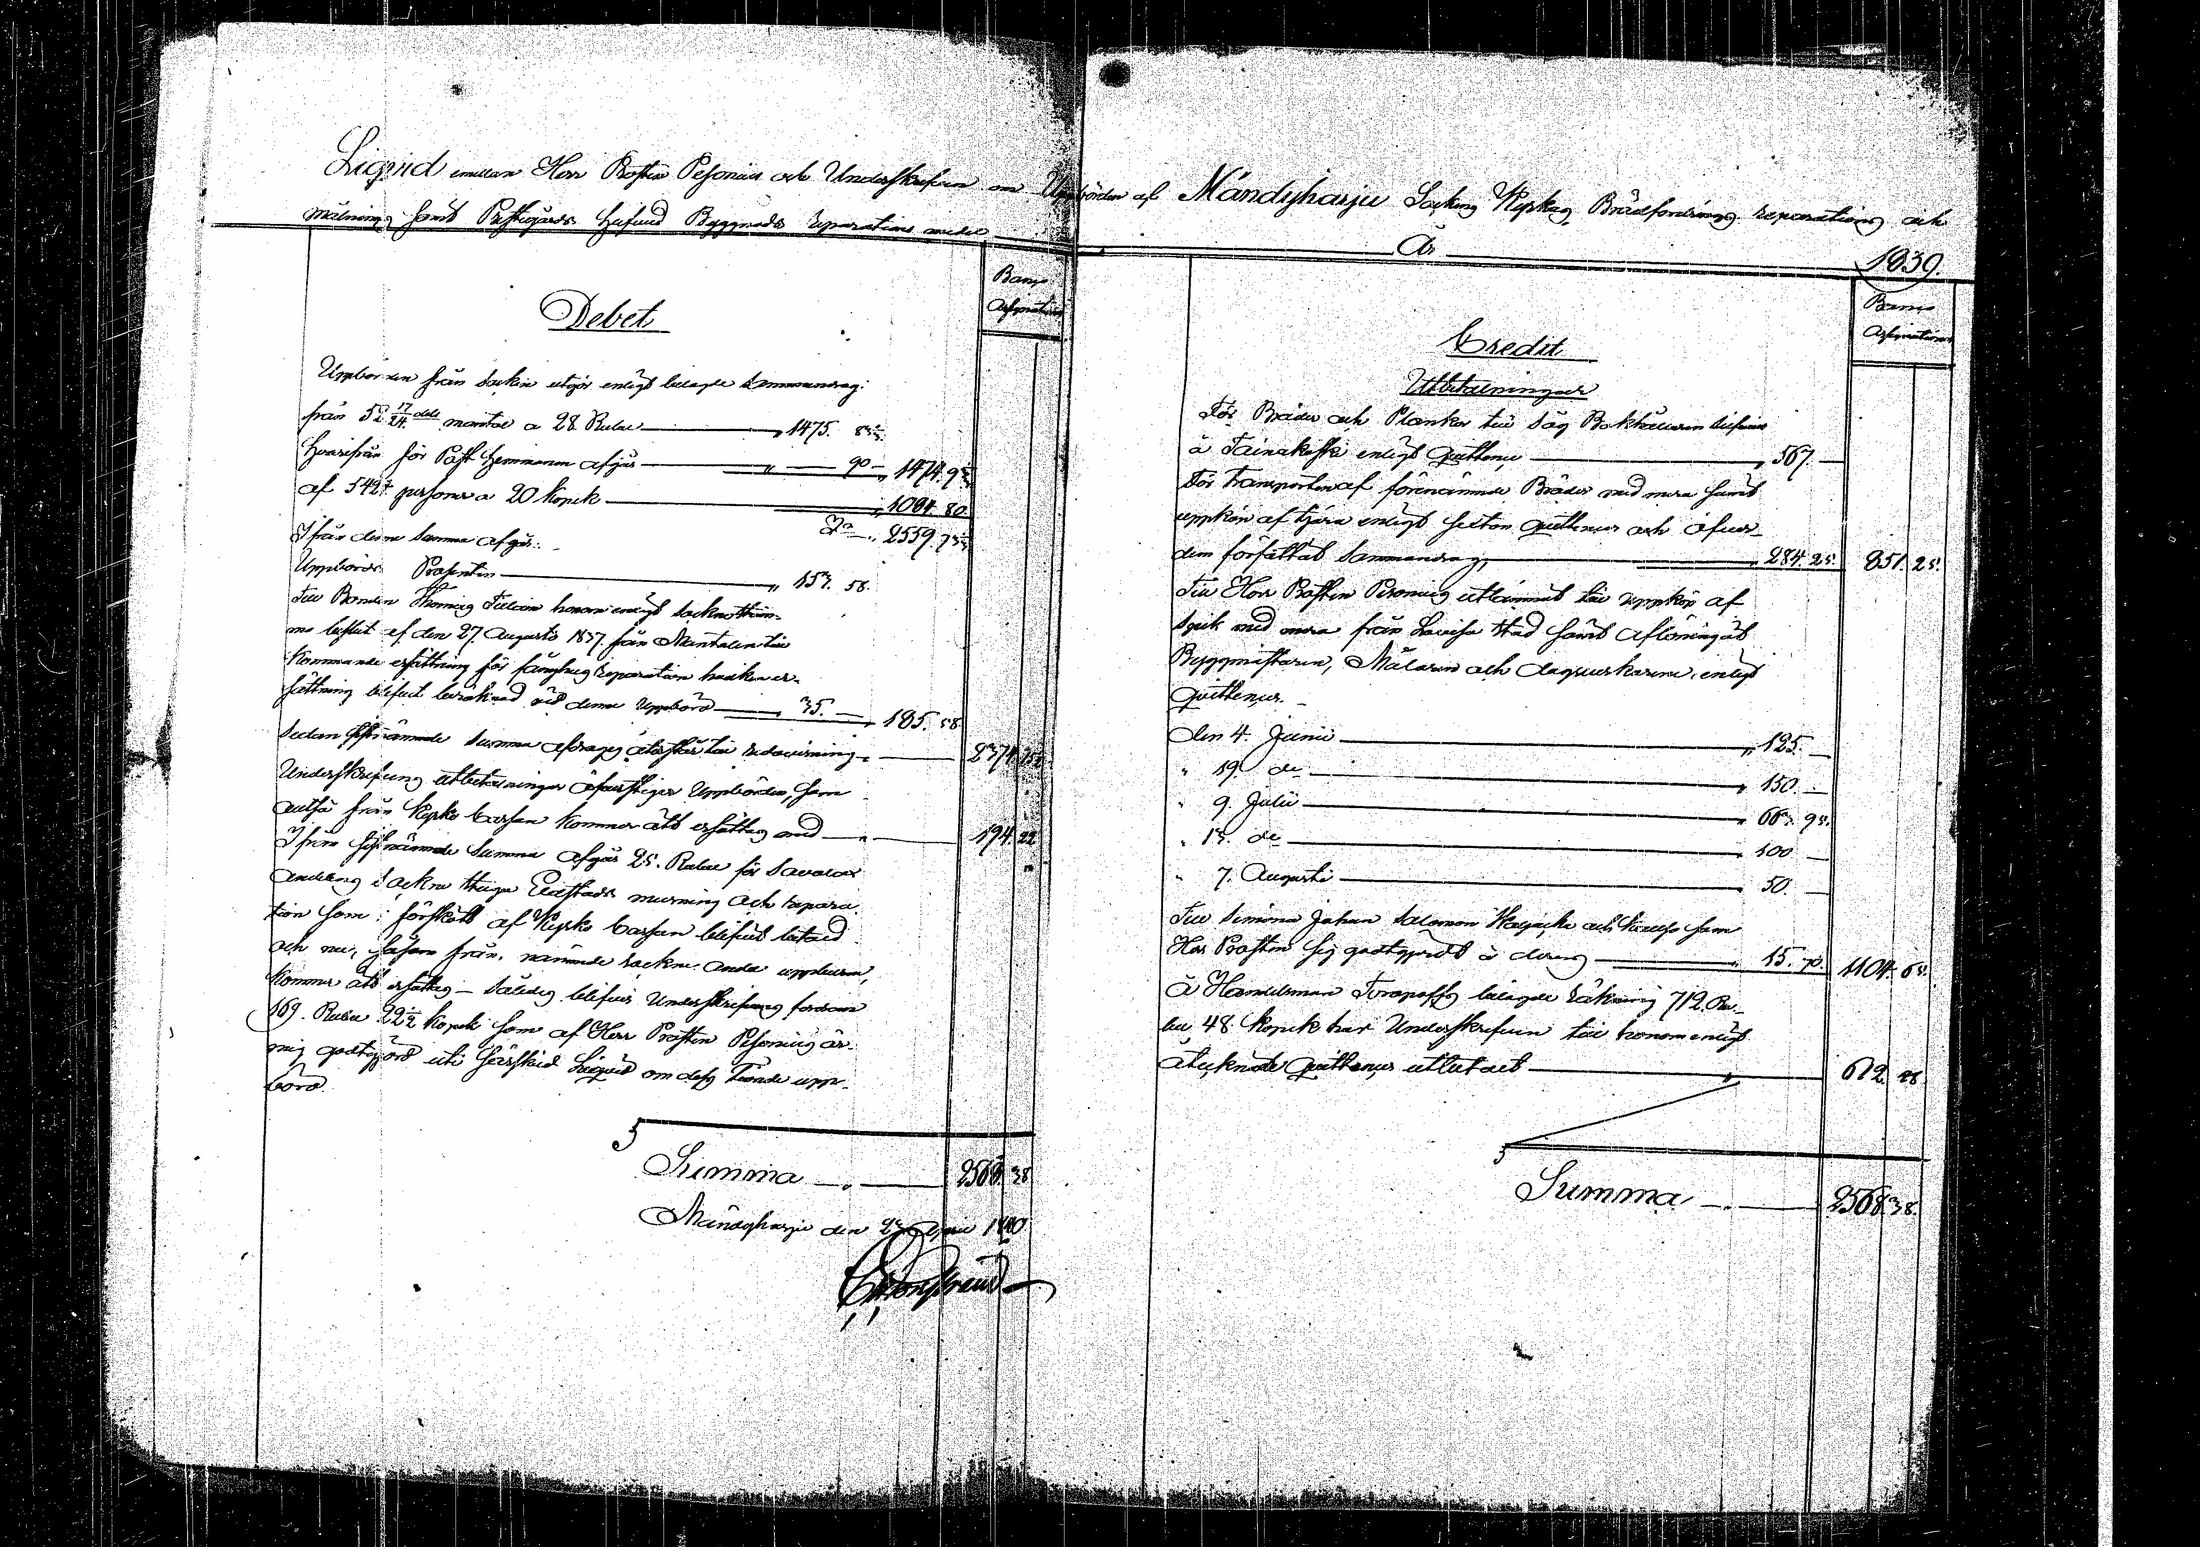 Liqvid emellan Herr Prosten Pesonius och Underskrefven om Uppbörden af Mändyharju Sockens Kyrkas Brädfordrings reparations och
målnings samt Prestegårds Hufvud Byggnads reparations medel År 1839.
Debet
Banco Assignationer
Uppbörden från Sockn utgör enligt bilagde sammandrag:
från 52 17/24 dels mantal a 28 Rubel 1475. 83
Hvarifrån för Post Hemmanen afgår 90 1474. 93
af 5424 personer a 20 kopek 1084. 80
Sa 2559. 73
Ifrån denne Summa afgår:
Uppbörds Procenten 153. 58.
Till Bonden Thomas honom enligt Sockne stäm-
mo beslut af den 27 Augusti 1837 från Mantalen till
kommande ersättning för reparation hvilken er-
sättning blifvit beräknad vid denna Uppbörd 35. 185. 58
Sedan sistnämnde Summa afdrages återstår till redovisning 2374. 15
Underskrefvens utbetalningar öfverstiger Uppbörden, som
altså från Kyrko Cassan kommer att ersättas med 194. 22
Ifrån sistnämnde Summa afgår 25. Rubel för Savolax
andelens Sockne Stugu Eldstads murning och repara-
tion som i förskott af Kyrko Cassan blifvit betald
och nu, såsom från nämnde Sockne andel uppburen,
kommer att ersättas – således blifver Underskrefvens fordran
169. Rubel 22 1/2 kopek som af Herr Prosten Pesonius är
mig godtgjord uti särskild Liqvid om dess Tionde upp-
börd.
Summa 2568. 38
Mändyharju den 23 April 1840
Credit
Banco Assignationer
Utbetalningar
För Bräder och Plankor till Såg Bokhållaren
å enligt Quittence 567.
För transporten af förenämnde Bräder med mera samt
uppköp af tjära enligt sexton quittencer och öfver
dem författadt Sammandrag 284. 25. 851. 25.
Till Herr Prosten Pesonius utlemnat till uppköp af
Spik med mera från Lovisa Stad samt aflöningåt
Byggmästaren, Målaren och dagsverkarena, enligt
Quittencer.
den 4. Junii 125.
" 19. do 150.
" 9. Julii 663. 95.
" 13. do 100
" 7. Augusti 50.
Till Simon Johan Salomon och som
Herr Prosten sig godtgjordt å deras 15. 70. 1104. 65.
Å Handelsman bilagde räkning 712 Ru-
bel 48 kopek har Underskrefven till honom enligt
åtecknade Quittencer utbetalt 612. 48
Summa 2568. 38.